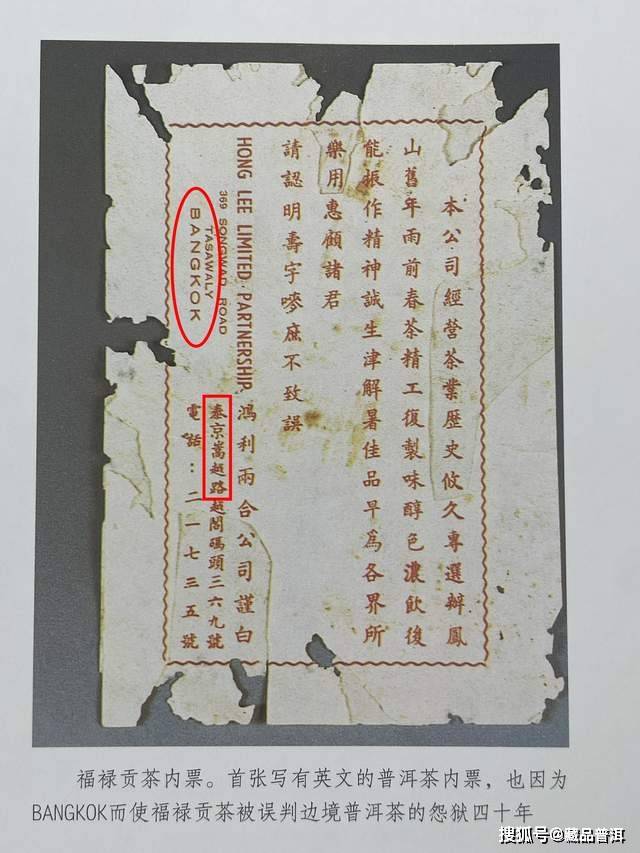 本公司經營茶業歷史攸久專選辦鳳
山舊年雨前春茶精工復製味醇色濃飲後
能振作精神誠生津解暑佳品早為各界所
樂用惠顧諸君
請認明壽字嘜庶不致誤
HONG LEE LIMITED PARTNERSHIP.
369 SONGWAD ROAD
TASAWALY
BANGKOK
鴻利兩合公司謹白
泰京嵩越路越閣碼頭三六九號
電話：二一七三五號
福禄贡茶内票。首张写有英文的普洱茶内票，也因为
BANGKOK而使福禄贡茶被误判边境普洱茶的怨狱四十年
搜狐号@藏品普洱